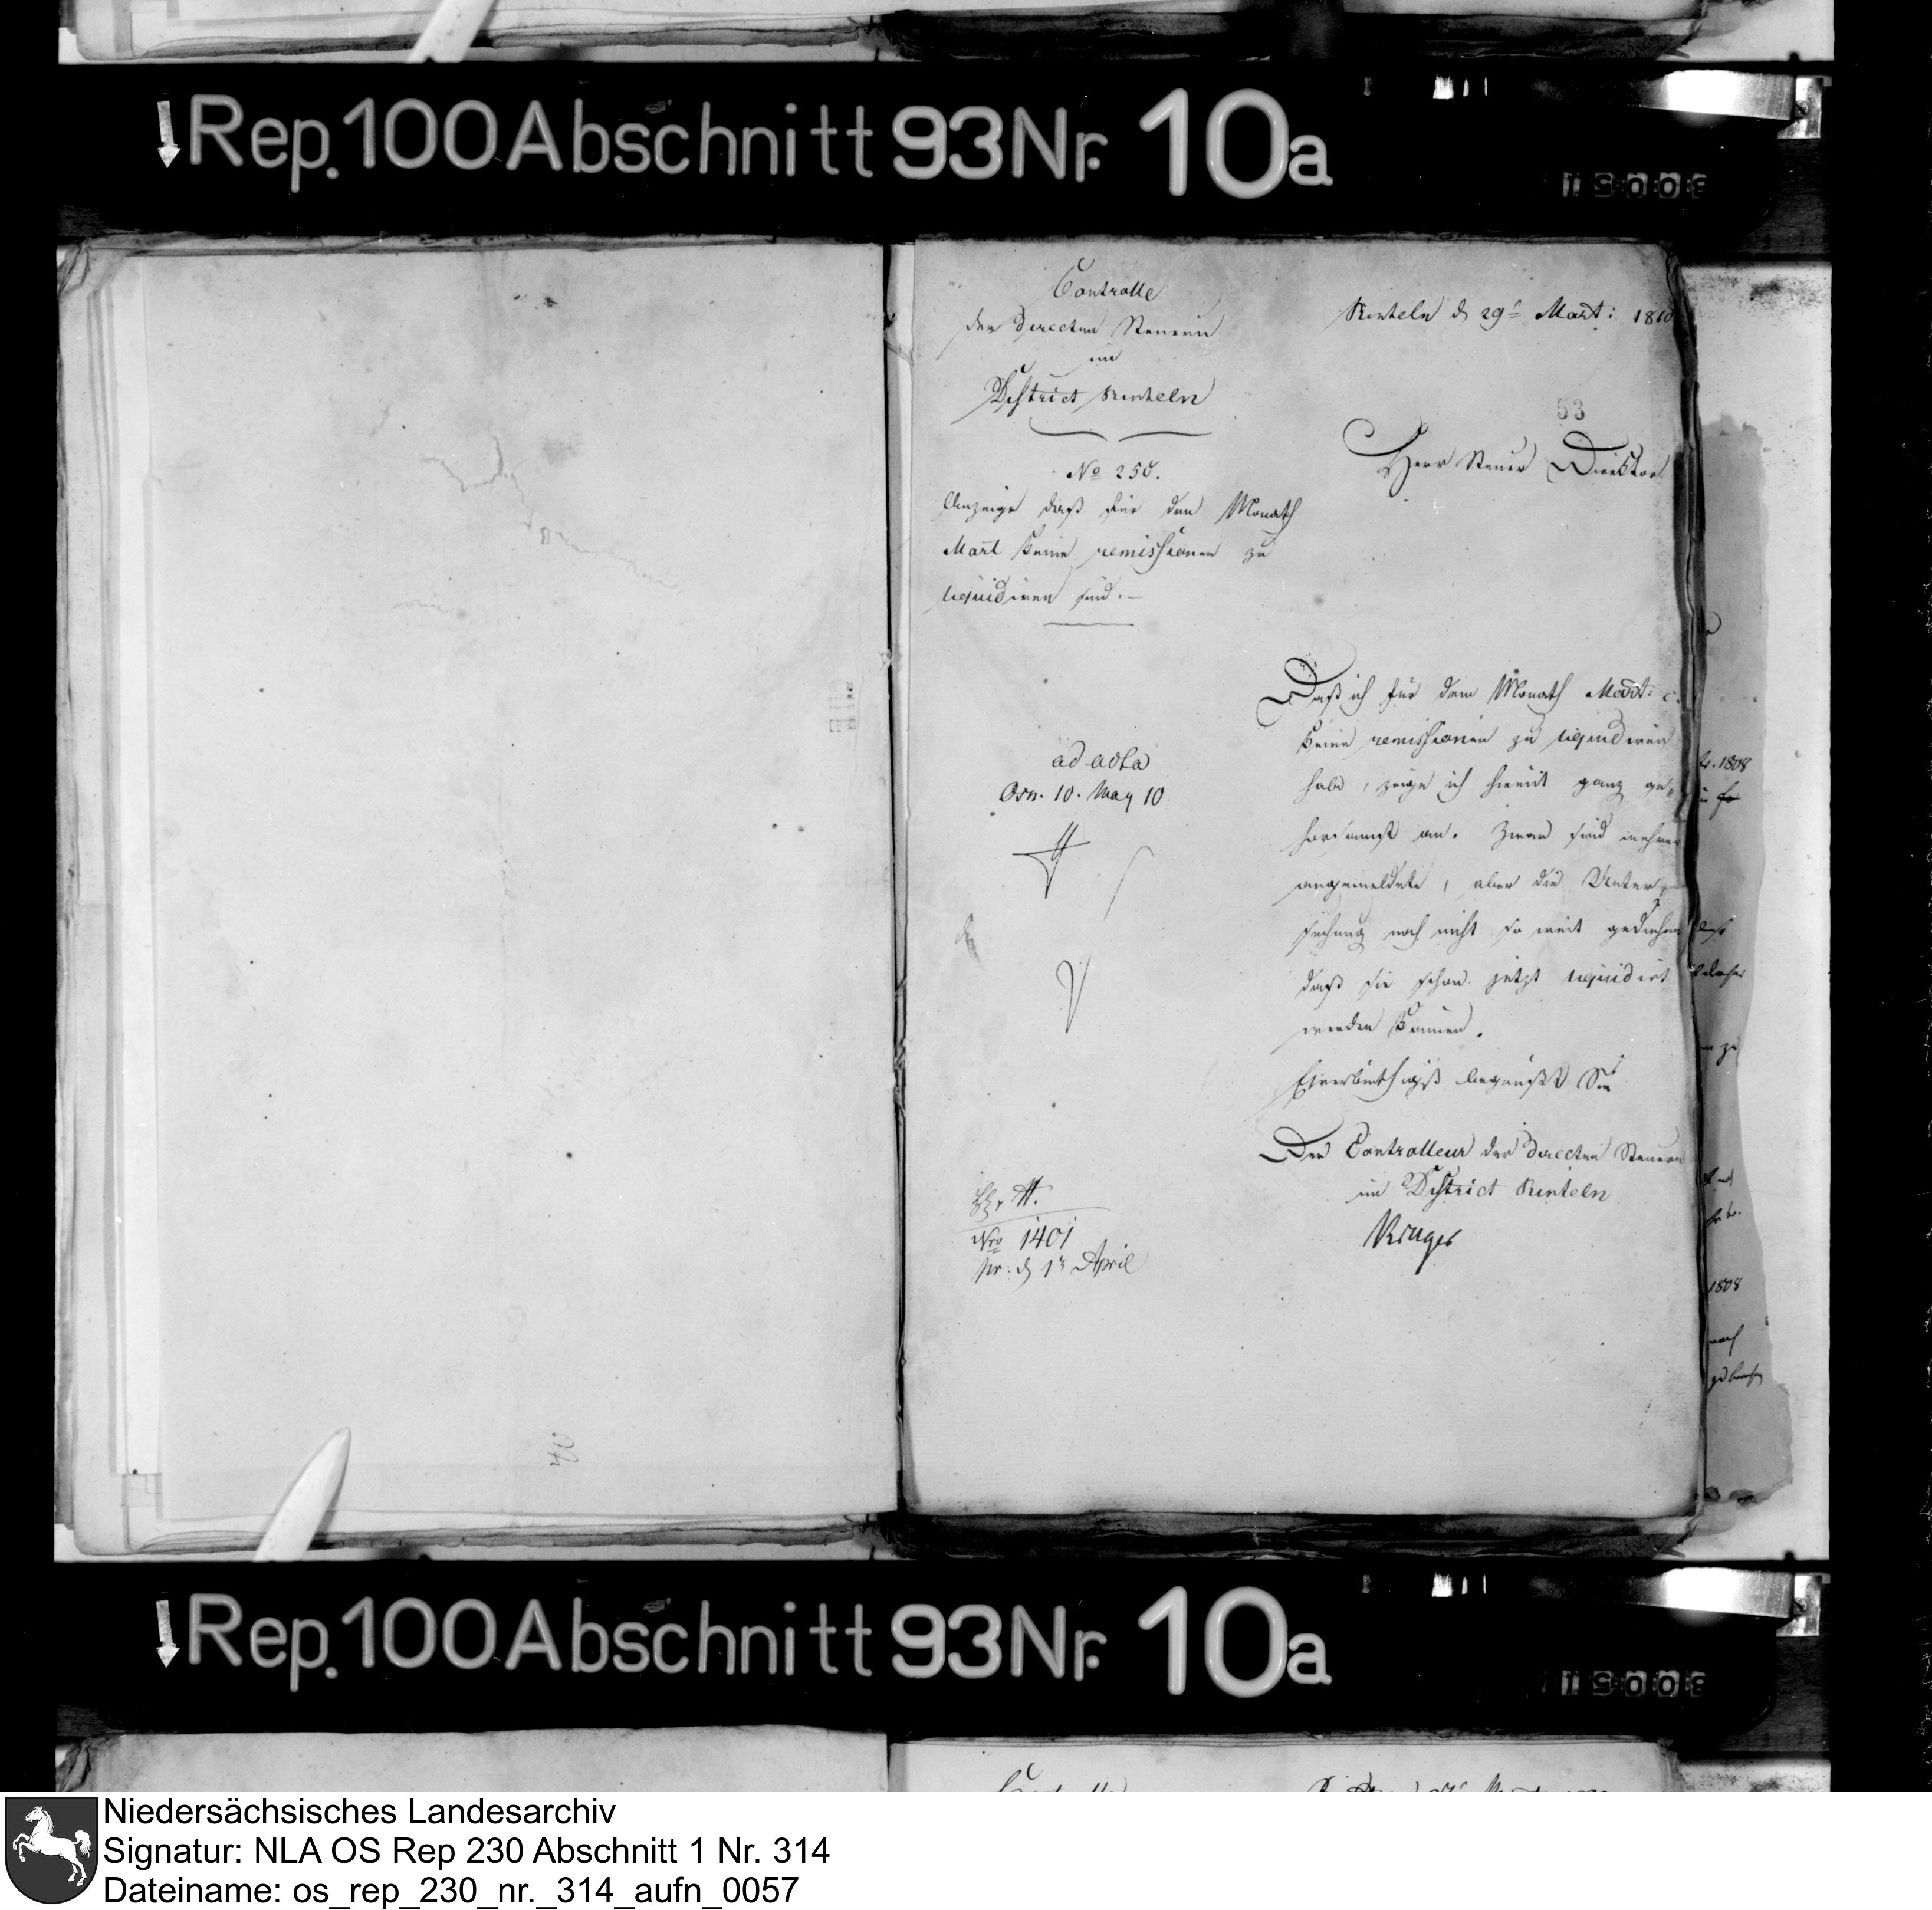 Rep. 100 Abschnitt 93 Nr. 10a
Controlle
der directen Steuern
im
District Rinteln
No 250.
Anzeige daß für den Monath
Mart keine remissionen zu
liquidiren sind. –
Rinteln d 29t Mart: 1810
53
Herr Steuer Direktor
Daß ich für dem Monath Mart: c.
keine remissionen zu liquidiren
habe, zeige ich hiemit ganz ge„
horsamst an. Zwar sind mehrere
angemeldete, aber die Unter„
suchung noch nicht so weit gediehen
daß sie schon jetzt liquidirt
werden können.
Ehrerbiethigst begrüßt Sie
Der Controlleur der directen Steuern
im District Rinteln
Krüger
ad acta
Osn. 10. May 10
Nro 1401
pr: d 1n April
Rep. 100 Abschnitt 93 Nr. 10a
Niedersächsisches Landesarchiv
Signatur: NLA OS Rep 230 Abschnitt 1 Nr. 314
Dateiname: os_rep_230_nr._314_aufn_0057